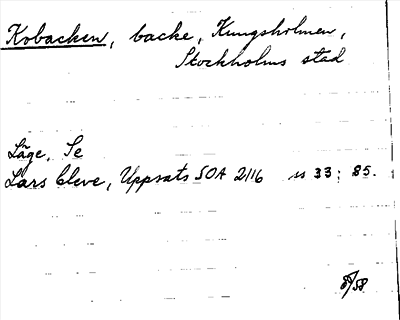 Kobacken, backe, Kungsholmen,
Stockholms stad
Läge. Se
Lars Cleve, Uppsats SOA 2116 s 33; 85.
/58